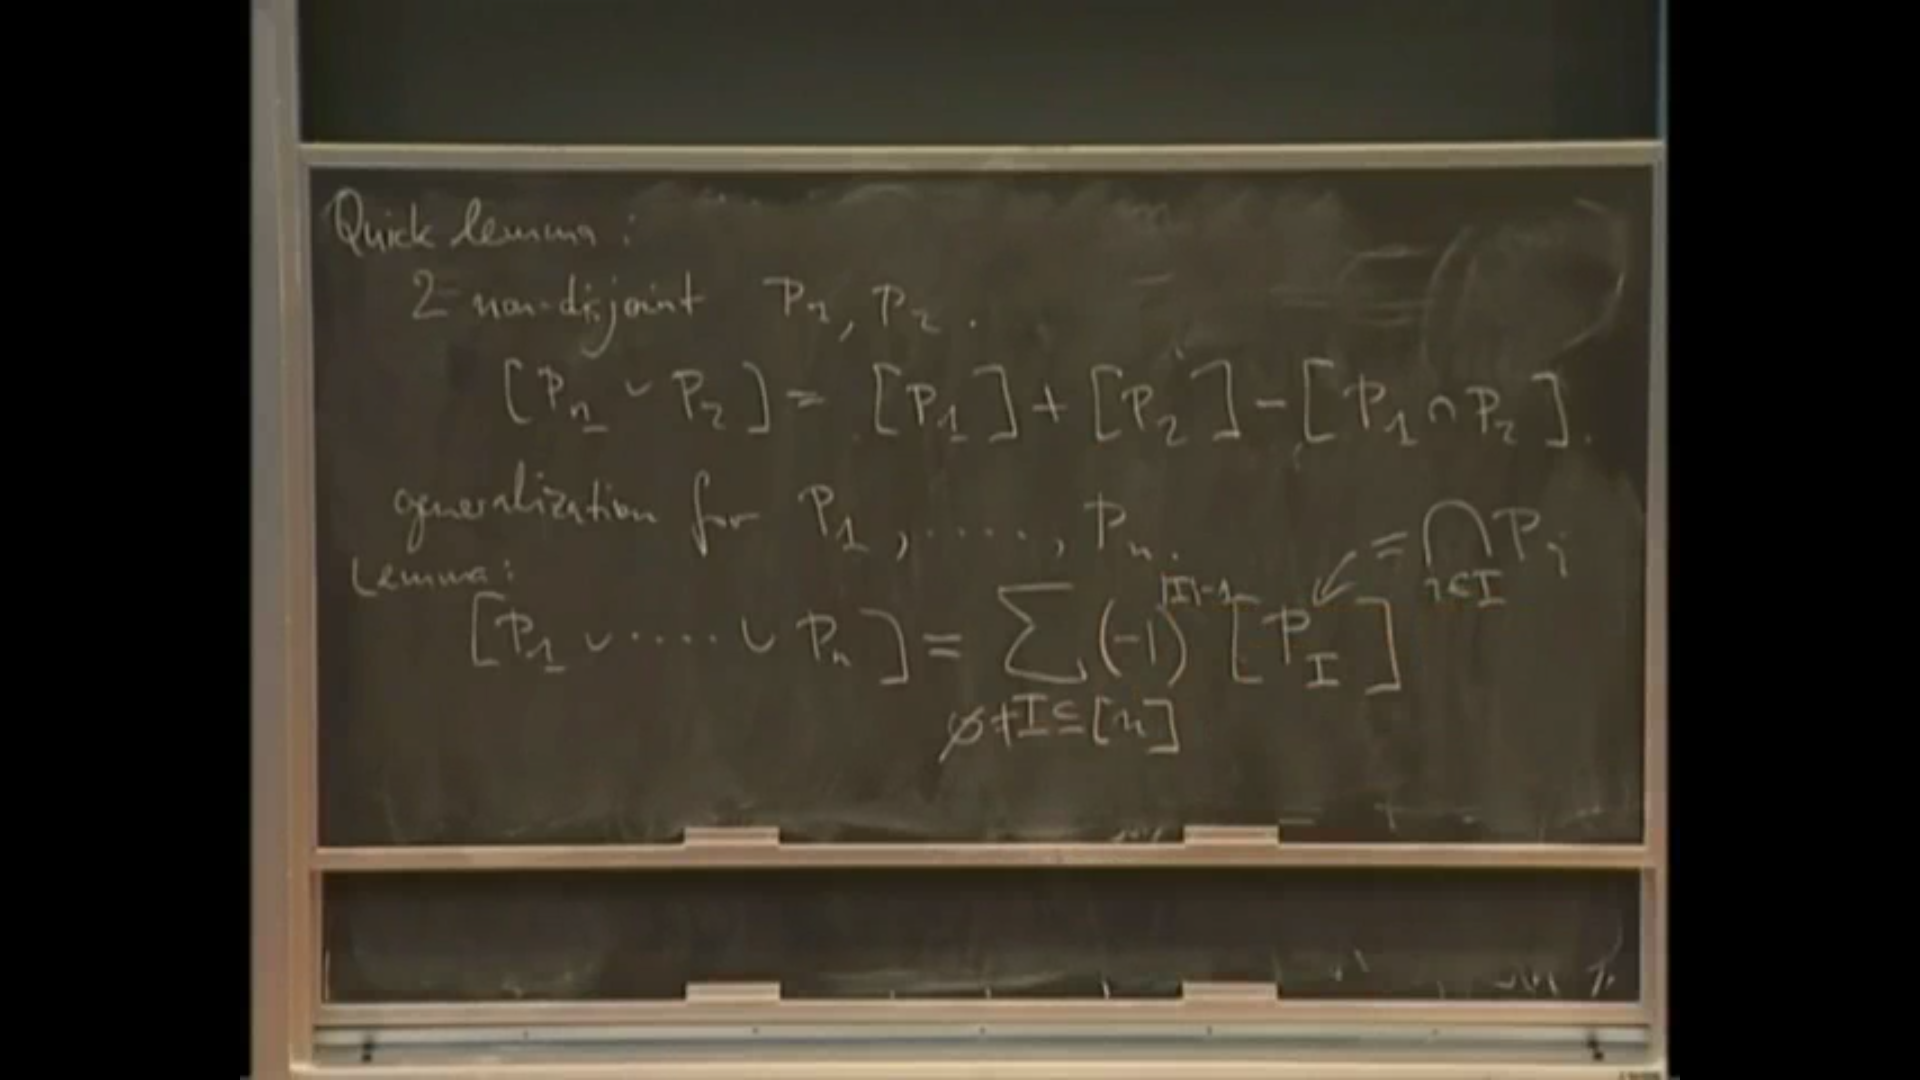 Quick lemma:
2 non-disjoint P₁, P₂.
[P₁ ∪ P₂] = [P₁] + [P₂] - [P₁ ∩ P₂].
generalization for P₁, ....., Pₙ.
Lemma:
[P₁ ∪ ..... ∪ Pₙ] = ∑_{∅≠I⊆[n]} (-1)^{|I|-1} [P_I] ↙ = ⋂_{i∈I} P_i